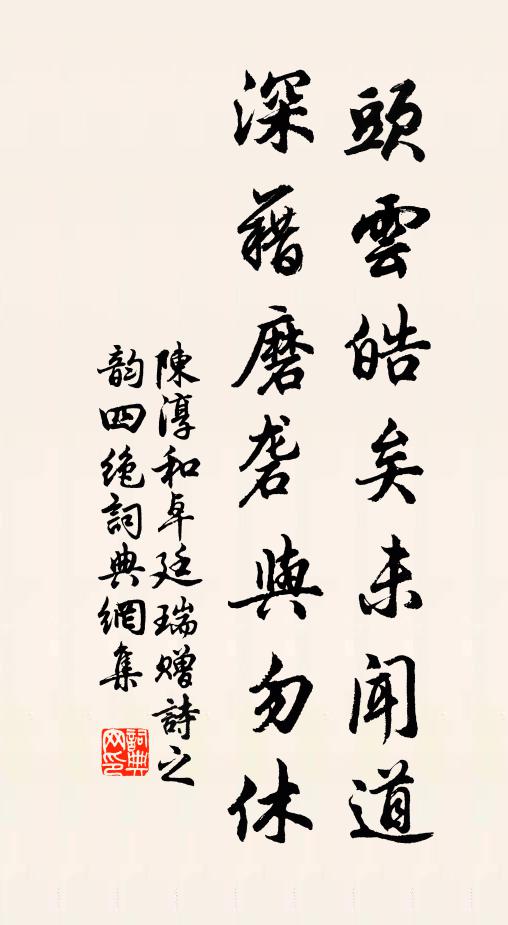 頭雲皓矣未聞道
深藉磨砻與勿休
陳淳和卓廷瑞贈詩之
韵四絶詞典網集
詞典
网印